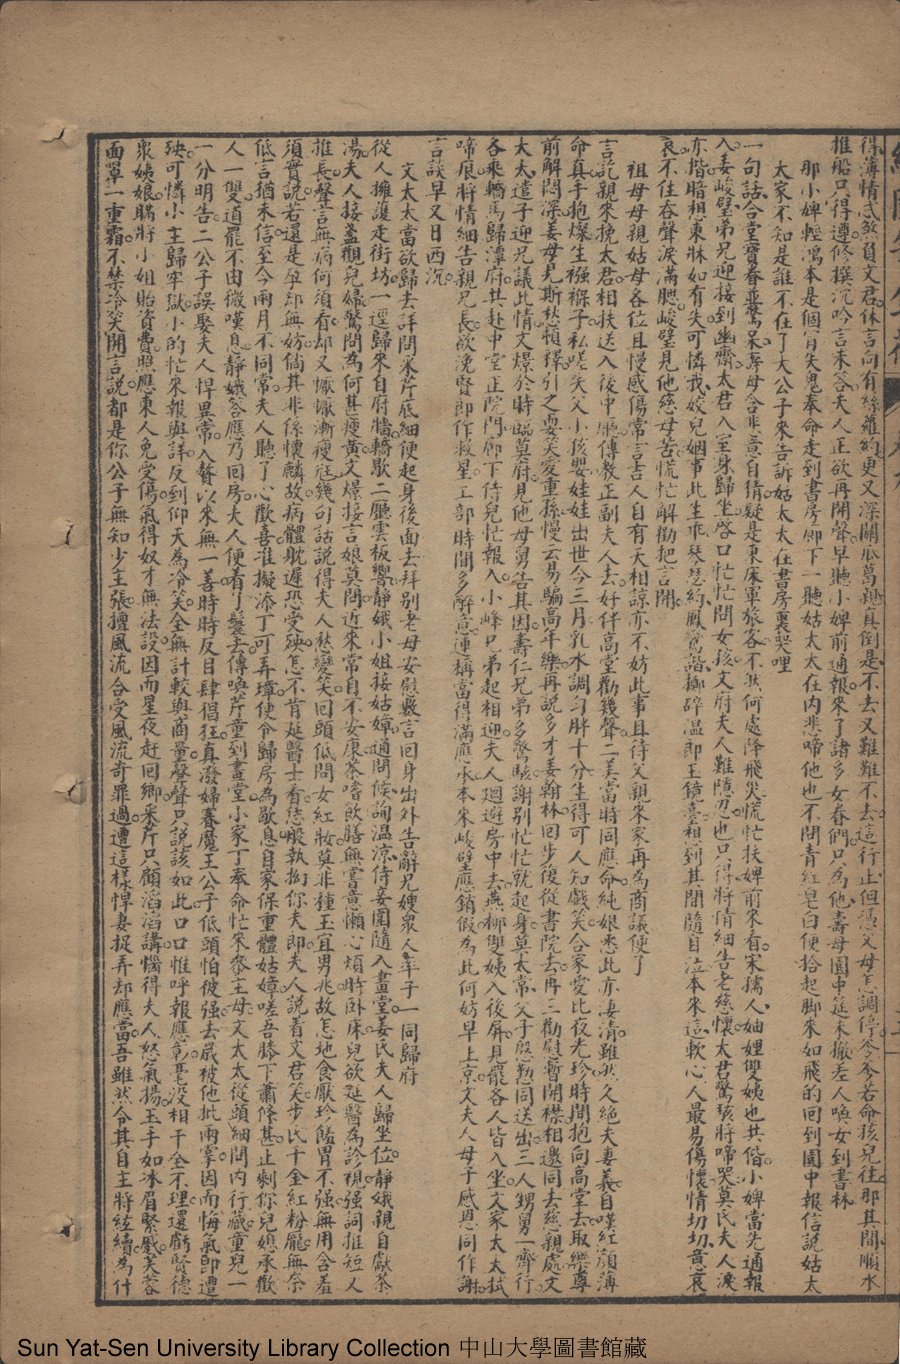 得薄情忒煞負文君休言向有絲蘿約更又深關瓜葛親真倒是不去又難難不去這行止但憑父母怎調停爺爺若命孩兒往那其間順水
推船只得遵修撰沉吟言未答夫人正欲再開聲早聽小婢前通報來了諸多女眷們只為他壽母園中筵未撤差人喚女到書林
那小婢輕寫本是個冒失鬼奉命走到書房廊下一聽姑太太在內悲啼他也不問青紅皂白便拾起脚來如飛的回到園中報信說姑太
大家不知是誰不在了大公子來告訴姑太太在書房裏哭哩
一句話合堂寶眷盡驚呆壽母合非意自猜疑是東床軍旅客不然何處降飛災慌忙扶婢前來看宋孺人妯娌雙姨也共偕小婢當先通報
入姜峻璧弟兄迎接到幽齋太君入室身歸坐啓口忙忙問女孩文府夫人難隱忍也只得將情細告老慈懷太君驚駭將啼哭莫氏夫人淚
亦揩暗想東牀如有失可憐我姣兒姻事此生乖琴瑟約鳳鸞諧擲碎溫郎玉鏡臺想到其間隨自泣本來這軟心人最易傷懷情切切意哀
哀不住吞聲淚滿腮峻璧見他慈母苦慌忙解勸把言開
祖母母親姑母各位且慢感傷常言吉人自有天相諒亦不妨此事且待父親來家再為商議便了
言訖親來挽太君相扶送入後中廳傳教正副夫人去好仔高堂勸幾聲二美當時同應命純娘悉此亦淒清雖然久絕夫妻義自嘆紅顏薄
命真手抱燦生襁褓子私嗟失父小孩嬰娃娃出世今三月乳水調勻胖十分生得可人知戲笑合家愛比夜光珍時間抱向高堂去取樂尊
前解悶深姜母見斯愁頓釋引之耍笑愛重孫慢云易騙高年樂再說多才姜翰林回步復從書院去再三勸慰暫開襟相邀同去慈親處文
太太遣子迎兄議此情文燝於時臨莫府見他母舅告其因壽仁兄弟多驚駭謝別忙忙就起身莫太常父子慇懃同送出三人甥舅一齊行
各乘轎馬歸潭府共赴中堂正院門廊下侍兒忙報入小峰兄弟起相迎夫人迴避房中去燕柳雙姨入後屏見罷各人皆入坐文家太太拭
啼痕將情細告親兄長欲浼賢郎作救星工部時間多醉意連稱當得滿應承本來峻璧應銷假為此何妨早上京文夫人母子感恩同作謝
言談早又日西沉
文太太當欲歸去詳問采芹底細便起身後面去拜別老母安慰數言回身出外告辭兄嫂衆人率子一同歸府
從人擁護走街坊一逕歸來自府牆轎歇二廳雲板響靜娥小姐接姑嫜通問候詢溫涼侍妾圍隨入畫堂姜氏夫人歸坐位靜娥親自獻茶
湯夫人接盞觀兒婦驚問為何甚瘦黃文燝接言娘莫問近來常自不安康茶嗜飲膳無嘗意懶心煩時卧床兒欲延醫為診視强詞推短又
推長聲言無病何須看却又懨懨漸瘦尫幾句話說得夫人愁變笑回頭低問女紅妝莫非種玉宜男兆故怎地食厭珍饈胃不强無用含羞
須實說若還是孕却無妨倘其非係懷麟故病體躭遲恐受殃怎不肯延醫士看恁般執拗你夫郎夫人說着文君笑步氏千金紅粉龐無奈
低言猶未信至今兩月不同常夫人聽了心歡喜准擬添丁可弄璋便令歸房為歇息自家保重體姑嫜嗟吾膝下蕭條甚止剩你兒媳承歡
人一雙道罷不由微嘆息靜娥答應乃回房夫人便着丫鬟去傳喚芹童到畫堂小家丁奉命忙來叅主母文太太從頭細問內行藏童兒一
一分明告二公子誤娶夫人悍異常入贅以來無一善時時反目肆猖狂真潑婦賽魔王公子低頭怕彼强去歲被他批兩掌因而悔氣即遭
殃可憐小主歸牢獄小的忙來報與詳反到仰天為冷笑全無計較與商量聲聲只說該如此口口惟呼報應彰毫沒相干全不理還虧賢德
衆姨娘賜將小姐貽資費照應東人免受傷氣得奴才無法設因而星夜赶回鄉采芹只顧滔滔講惱得夫人怒氣揚玉手如冰眉緊蹙芙蓉
面罩一重霜不禁冷笑開言說都是你公子無知少主張擅風流合受風流奇罪過遭這樣悍妻捉弄却應當吾雖然令其自主將絃續為什
Sun Yat-Sen University Library Collection 中山大學圖書館藏